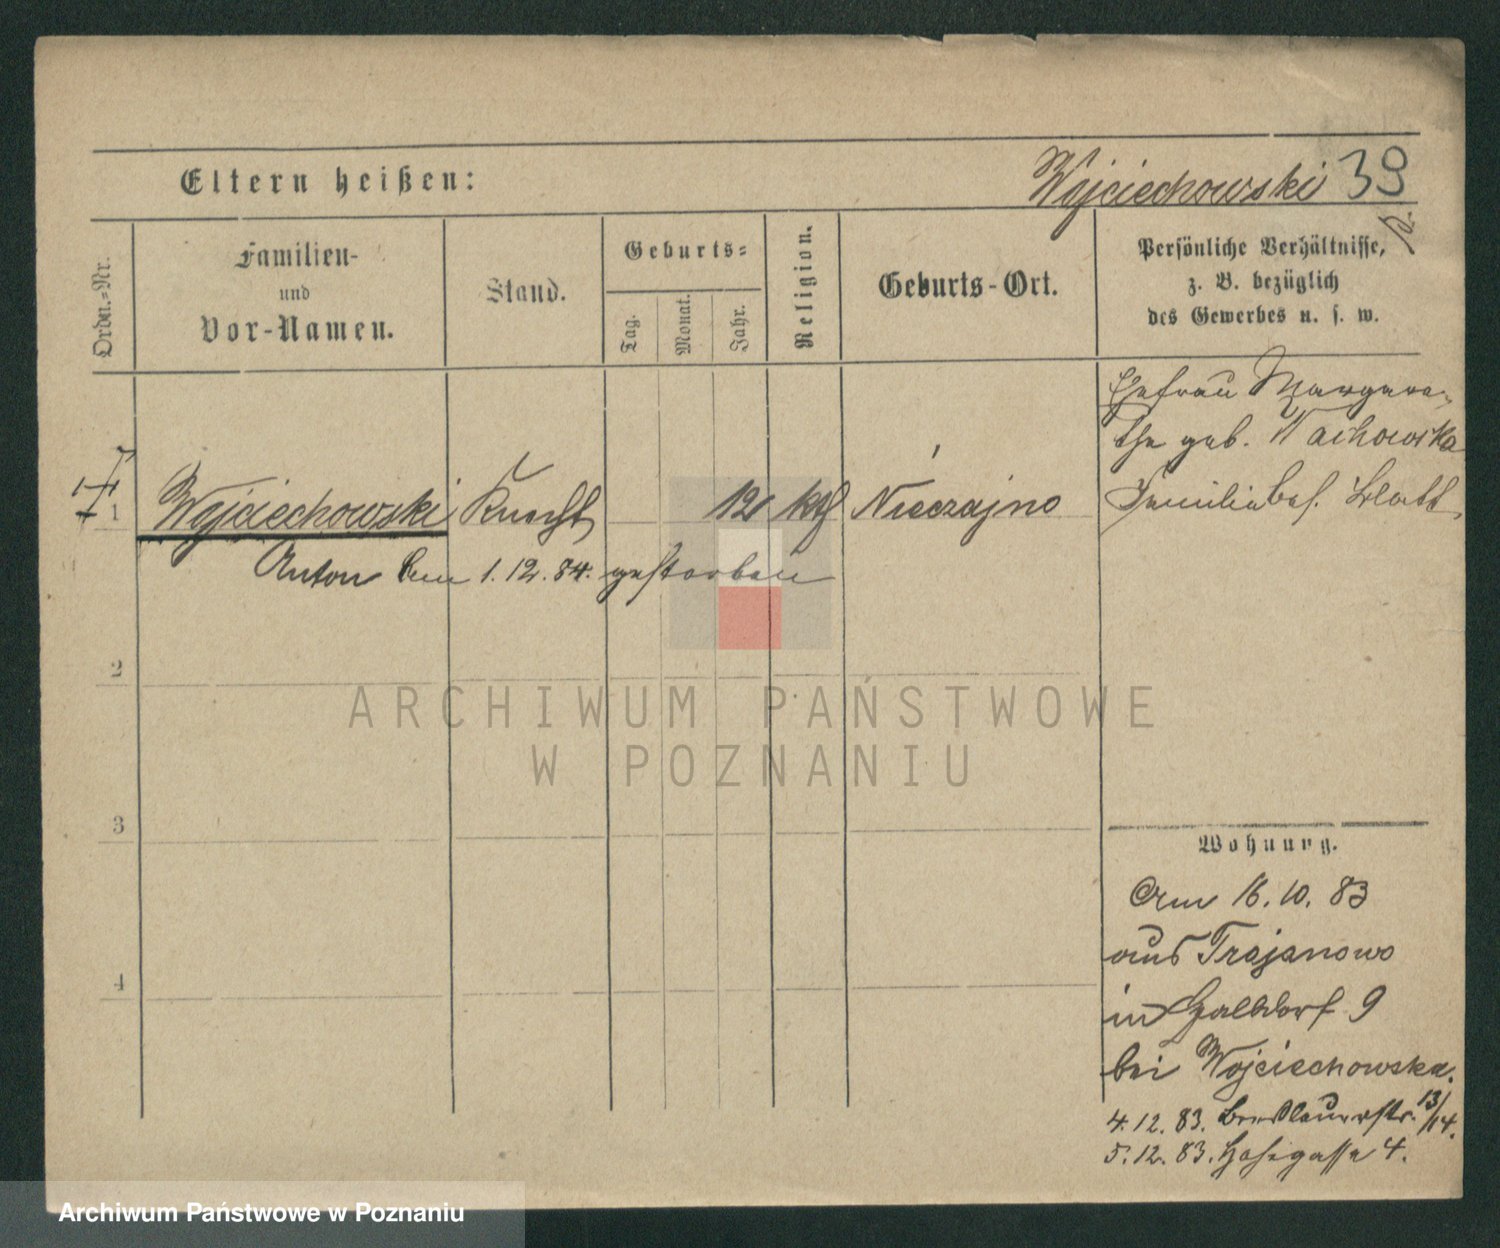 Eltern heißen:
Wojciechowski 39
Ordn.-Nr.
Familien-
und
Vor-Namen.
Stand.
Geburts-
Tag.
Monat.
Jahr.
Religion.
Geburts-Ort.
Persönliche Verhältnisse,
z. B. bezüglich
des Gewerbes u. s. w.
Ehefrau Margare-
the geb. Wachowska
1 Wojciechowski Knecht 12 kth Nieczajno
Familie bes. Blatt
Anton Am 1.12.84. gestorben
2
ARCHIWUM PAŃSTWOWE
W POZNANIU
3
Wohnung.
Am 16.10.83
aus Trojanowo
4
in Halbdorf 9
bei Wojciechowska.
4.12.83. Breslauerstr. 13/14.
5.12.83. 4.
Archiwum Państwowe w Poznaniu